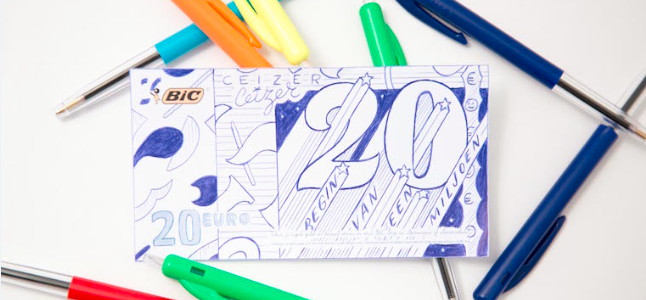 BIC
CEIZER
Ceizer
20
BEGIN
VAN
EEN
MILJOEN
20 EURO